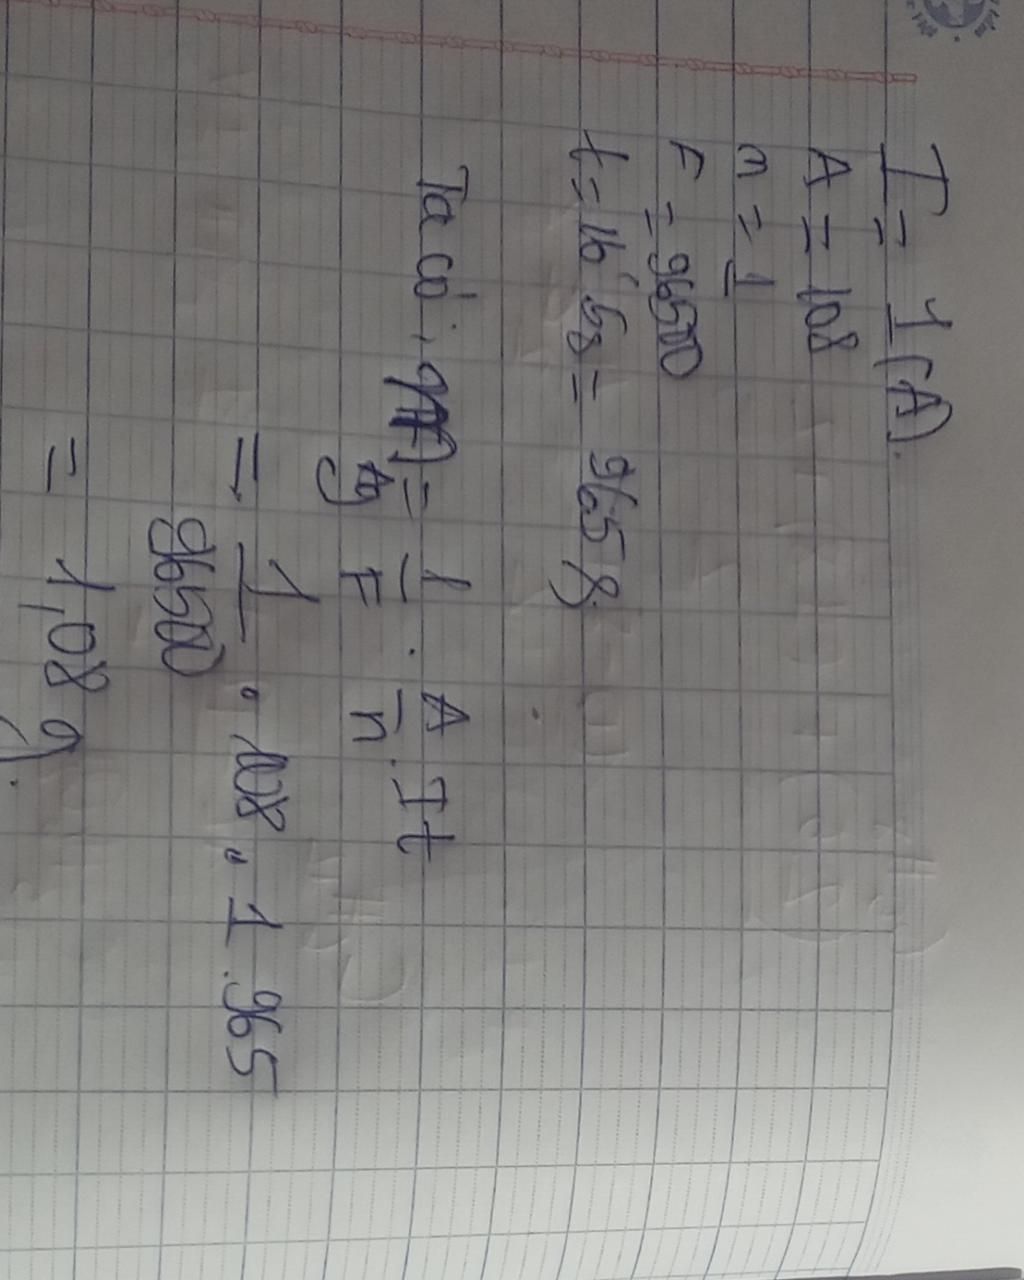 I = 1 (A).
A = 108
n = 1
F = 96500
t = 16' 5s = 965 s.
Ta có: = 1/F . A/n . It
Ag
= 1/96500 . 108 . 1 . 965
= 1,08 g.